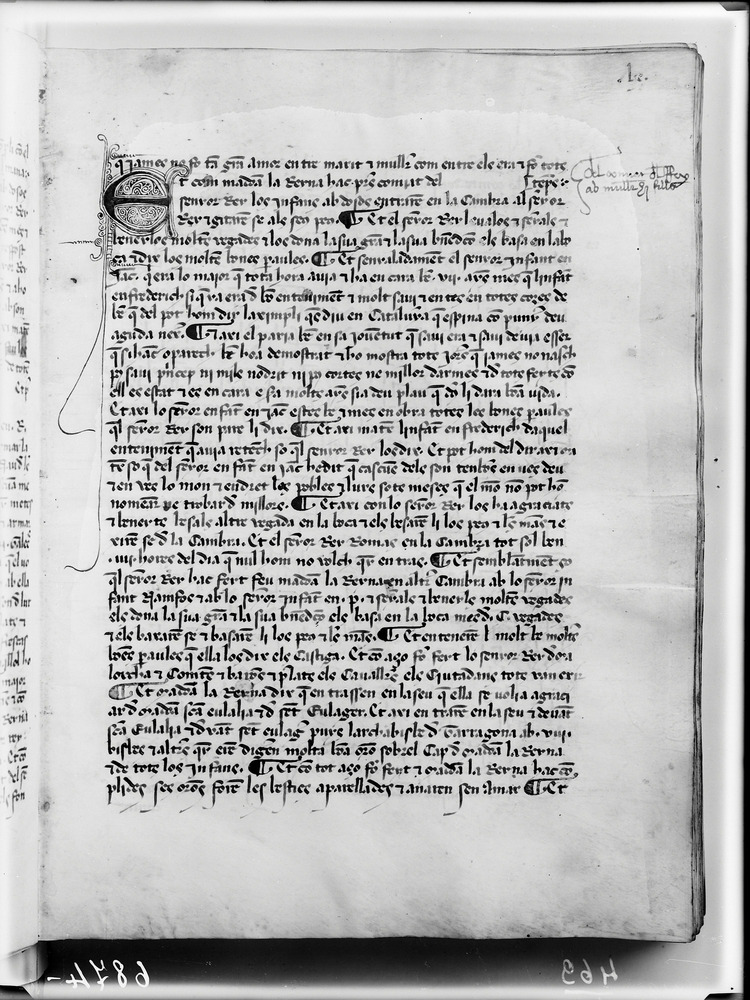 q̄ james no fo tā grā amor entre marit ⁊ mullr̄ com entre els era ⁊ fo tots
Et com madōa la Reyna hac pres comjat del
senyor Rey los jnfans abdosos entraren en la Cambra al senyor
Rey ⁊ gitarē se als seus peus. ¶ Et el senyor Rey leualos ⁊ senyals ⁊
beneylos moltes vegades ⁊ los dona la sua grā ⁊ la sua bn̄edcō els basa en la bo
ca ⁊ dix los moltes bones paraules. ¶ Et senyaladament el senyor jnfant en
Jac. q̄ era lo maior q̄ tota hora auia ⁊ ha en cara be .vii. ayns mes q̄ linfāt
en frederich si q̄ ia era d̄ bō enteniment ⁊ molt saui ⁊ entes en totes coses de
be q̄ del pot hom dir leximpli qes diu en Catalunya q̄ espina cō punyr deu
aguda nex. ¶ Axi el paria be en sa jouentut q̄ saui era ⁊ saui deuia esser
q̄ si hac oparech be ho a demostrat ⁊ ho mostra tots jorns q̄ james no nasch
pus saui princep ni mils nodrit ni pus cortes ne millor darmes ⁊ d̄ tots fets cō
ell es estat ⁊ es en cara e sa molts ayns sia deu plau q̄ d̄s li dara bōa vida.
Et axi lo senyor enfāt en jac estes be ⁊ mes en obra totes les bones paraules
q̄l senyor Rey son pare li dix. ¶ Et axi mateix linfāt en frederich daquel
enteniment q̄ auia retench so q̄l senyor Rey los dix. Et pot hom del dir axi cū
te so q̄ del senyor enfāt en jac he dit q̄ cascūs dels son tenbōs en ves deu
⁊ en ves lo mon ⁊ en dret los pobles ⁊ lurs sotsmeses q̄ el mō nō pot hō
nomenar ne trobar d̄ millors. ¶ Et axi con lo senyor Rey los ha agraciats
⁊ beneyts besals altre vegada en la boca ⁊ els besarē li los peus ⁊ les mās ⁊ e
xirē se d̄ la Cambra. Et el senyor Rey Romas en la Cambra tot sol ben
.iiii. hores del dia q̄ nul hom no volch q̄ y entras. ¶ Et semblātment ço
q̄l senyor Rey hac fet feu madōa la Reyna en altra Cambra ab lo senyor in
fant Namfos ⁊ ab lo senyor jnfāt en .p. ⁊ senyals ⁊ beneyls moltes vegades
els dona la sua grā ⁊ la sua bn̄edcō els basa en la boca mes d̄ .C. vegades
⁊ els baxarē se ⁊ basarē li los peus ⁊ les mās. ¶ Et entenetz be molt be moltes
bōes paraules que ella los dix els castiga. Et cō aço fo fet lo senyor Rey d̄ma
lorcha ⁊ Comtes ⁊ barōs ⁊ plats els Cauallers els Ciutadans tots van exir
¶ Et madōa la Reyna dix q̄ en trassen en la seu q̄ ella se volia agraci
ar d̄ madōa scā eulalia ⁊ d̄ sēt Eulager. Et axi en trarē en la seu ⁊ deuāt
scā Eulalia ⁊ d̄uāt sēt eulag̉ puys larchabisbe d̄ Tarragona ab .viii.
bisbes ⁊ altres que eren digeren molta bōa orō sobrel Cap d̄ madōa la Reyna
⁊ de tots los jnfans. ¶ Et cō tot aço fo fet ⁊ madōa la Reyna hac cō
plides ses orōs foren les besties aparellades ⁊ anaren sen a mar ¶ Et
469
6874-